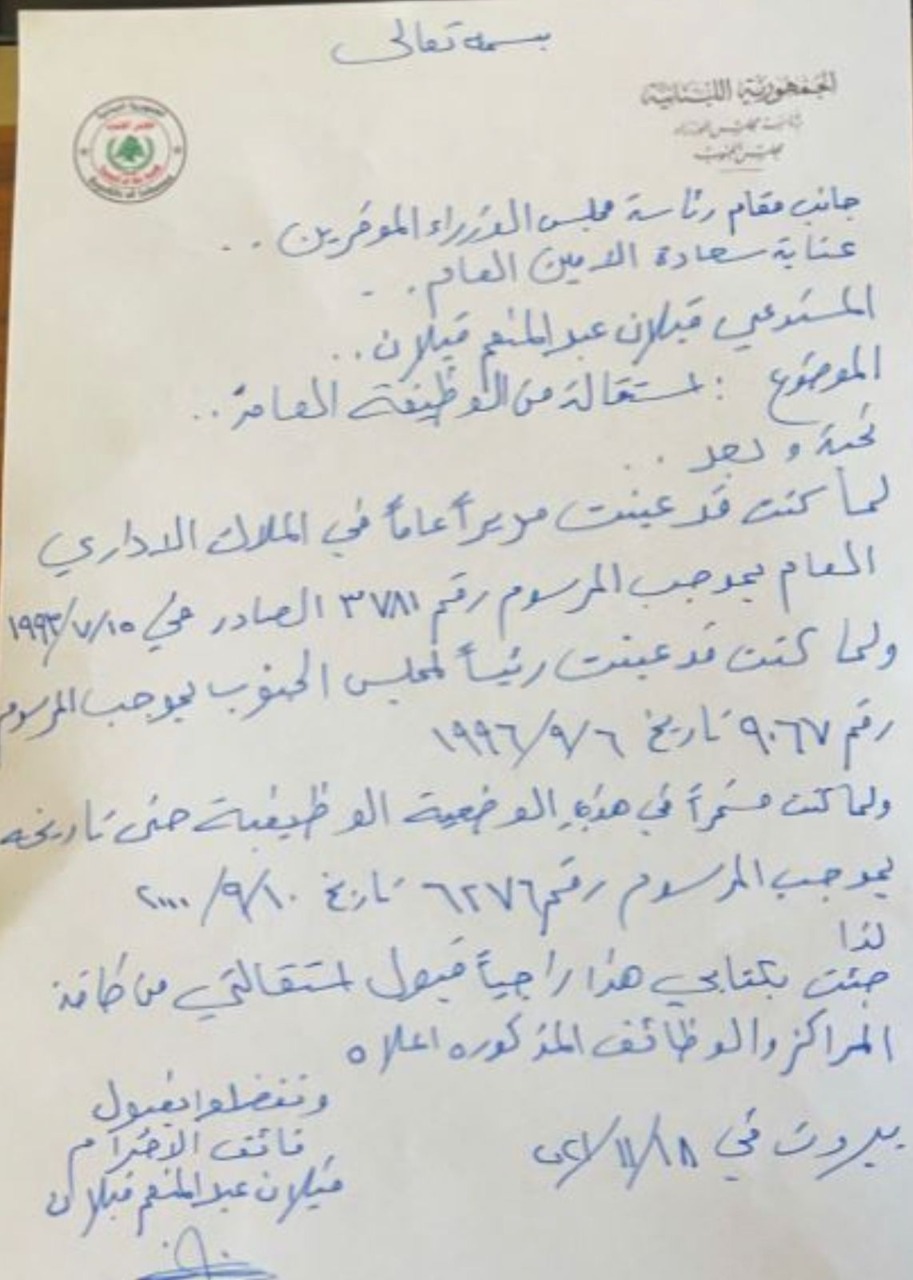 بسمه تعالى
الجمهورية اللبنانية
رئاسة مجلس الوزراء
مجلس الجنوب
الجمهورية اللبنانية
مجلس الجنوب
Council of the South
Republic of Lebanon
جانب مقام رئاسة مجلس الوزراء الموقرين ..
عناية سعادة الامين العام . -
المستدعي قبلان عبد المنعم قبلان ..
الموضوع : استقالة من الوظيفة العامة ..
تحية وبعد ..
لما كنت قد عينت مديراً عاماً في الملاك الاداري
العام بموجب المرسوم رقم ٣٧٨١ الصادر في ١٩٩٣/٧/١٥
ولما كنت قد عينت رئيساً لمجلس الجنوب بموجب المرسوم
رقم ٩٠٦٧ تاريخ ١٩٩٦/٩/٦
ولما كنت مستمراً في هذه الوضعية الوظيفية حتى تاريخه
بموجب المرسوم رقم ٦٢٧٦ تاريخ ٢٠٠٠/٩/١٠
لذا
جئت بكتابي هذا راجياً قبول استقالتي من كافة
المراكز والوظائف المذكوره اعلاه
وتفضلوا بقبول
فائق الاحترام
بيروت في ١٨/١١/
قبلان عبد المنعم قبلان